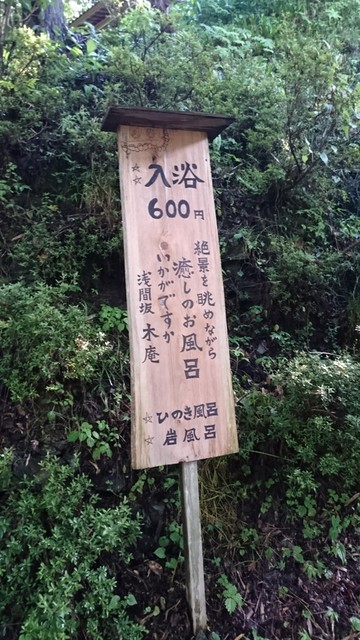 ☆入浴
☆600円
絶景を眺めながら
癒しのお風呂
いかがですか
浅間坂 木庵
☆ひのき風呂
☆岩風呂